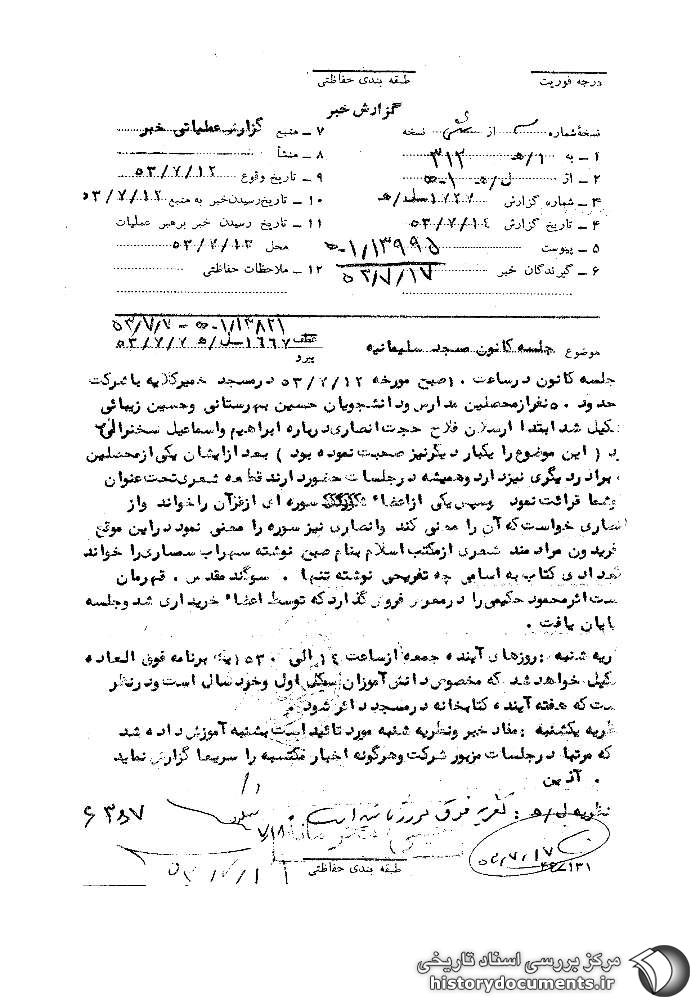 درجه فوریت
طبقه بندی حفاظتی
گزارش خبر
نسخه شماره از نسخه
۱ ـ به ۱/هـ ۳۱۲
۲ ـ از ل/هـ
۳ ـ شماره گزارش ۱۷۲۷
۴ ـ تاریخ گزارش ۵۳/۷/۱۴
۵ ـ پیوست
۶ ـ گیرندگان خبر
۵۳/۷/۱۷
۷ ـ منبع گزارش عملیاتی خبر
۸ ـ منشأ
۹ ـ تاریخ وقوع ۵۳/۷/۱۲
۱۰ ـ تاریخ رسیدن خبر به منبع ۵۳/۷/۱۲
۱۱ ـ تاریخ رسیدن خبر برهبر عملیات
محل ۵۳/۷/۱۳
۱۲ ـ ملاحظات حفاظتی
۱/۱۳۸۲۱ - ۵۳/۷/۷
عطف
پیرو ۵۳/۷/۷
موضوع جلسه کانون مسجد سلیمانیه
جلسه کانون در ساعت ۱۰ صبح مورخه ۵۳/۷/۱۲ در مسجد با شرکت
حدود ۵۰ نفر از محصلین مدارس و دانشجویان حسین بهرستانی و حسین زیبائی
تشکیل شد ابتدا ارسلان فلاح حجت انصاری درباره ابراهیم و اسماعیل سخنرانی
( این موضوع را یکبار دیگر نیز صحبت نموده بود ) بعد از ایشان یکی از محصلین
برادر دیگری نیز دارد و همیشه در جلسات حضور دارند قطعه شعری تحت عنوان
قرائت نمود وسپس یکی از اعضاء سوره ای از قرآن را خواند و از
انصاری خواست که آن را معنی کند و انصاری نیز سوره را معنی نمود در این موقع
فریدون مراد مند شعری از مکتب اسلام بنام صبح نوشته سهراب سمساری را خواند
تعدادی کتاب به اسامی چه تفریحی نوشته تنها . سوگند مقدس . قهرمان
اثر محمود حکیمی را در معرض فروش گذارد که توسط اعضاء خریداری شد و جلسه
پایان یافت .
نظریه شنبه : روزهای آینده جمعه از ساعت ۱۴ الی ۱۵۳۰ یک برنامه فوق العاده
تشکیل خواهد شد که مخصوص دانش آموزان سیکل اول و خرد سال است و در نظر
است که هفته آینده کتابخانه در مسجد دائر شود
نظریه یکشنبه : مفاد خبر و نظریه شنبه مورد تائید است بشنبه آموزش داده شد
که مرتبا در جلسات مزبور شرکت و هرگونه اخبار مکتسبه را سریعا گزارش نماید
. آذین
نظریه ل/هـ : نظریه فوق مورد تائید است .
۷/۱۸
۵۳/۷/۱۷
طبقه بندی حفاظتی
۳۴ـ۱۳۱
مرکز بررسی اسناد تاریخی
historydocuments.ir